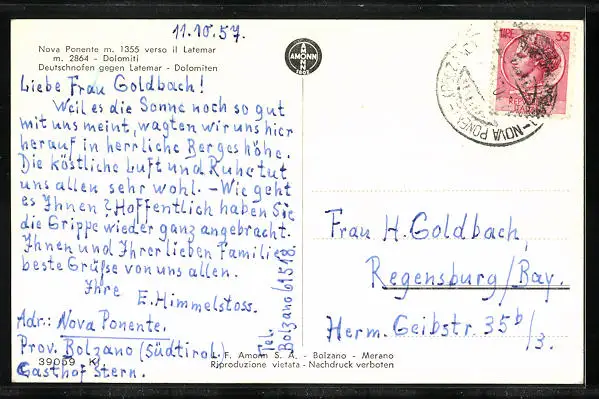 11.10.57.
Nova Ponente m. 1355 verso il Latemar
m. 2864 - Dolomiti
Deutschnofen gegen Latemar - Dolomiten
AMONN
1802
Liebe Frau Goldbach!
Weil es die Sonne noch so gut
mit uns meint, wagten wir uns hier
herauf in herrliche Bergeshöhe.
Die köstliche Luft und Ruhe tut
uns allen sehr wohl. - Wie geht
es Ihnen? Hoffentlich haben Sie
die Grippe wieder ganz angebracht.
Ihnen und Ihrer lieben Familie
beste Grüße von uns allen.
Ihre E. Himmelstoss.
Adr.: Nova Ponente.
Prov. Bolzano (Südtirol)
Gasthof Stern.
Tel.
Bolzano 61518.
39059 K
L. F. Amonn S. A. - Bolzano - Merano
Riproduzione vietata - Nachdruck verboten
LIRE 35
NOVA PONE
Frau H. Goldbach,
Regensburg/Bay.
Herm. Geibstr. 35b/3.